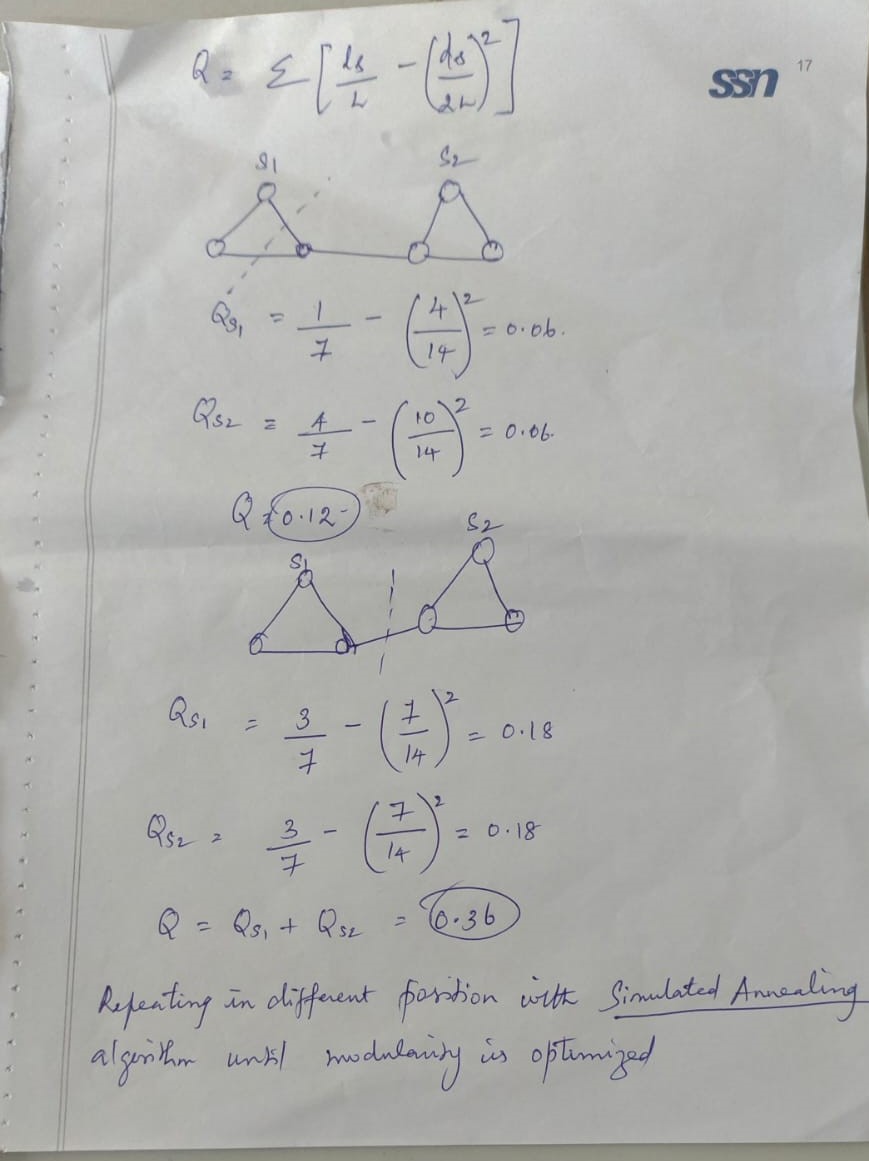 ssn 17
Q = Σ [ ls/L - (ds/2L)² ]
S1 S2
QS1 = 1/7 - (4/14)² = 0.06.
QS2 = 4/7 - (10/14)² = 0.06.
Q = 0.12
S1 S2
QS1 = 3/7 - (7/14)² = 0.18
QS2 = 3/7 - (7/14)² = 0.18
Q = QS1 + QS2 = 0.36
Repeating in different position with Simulated Annealing
algorithm until modularity is optimized